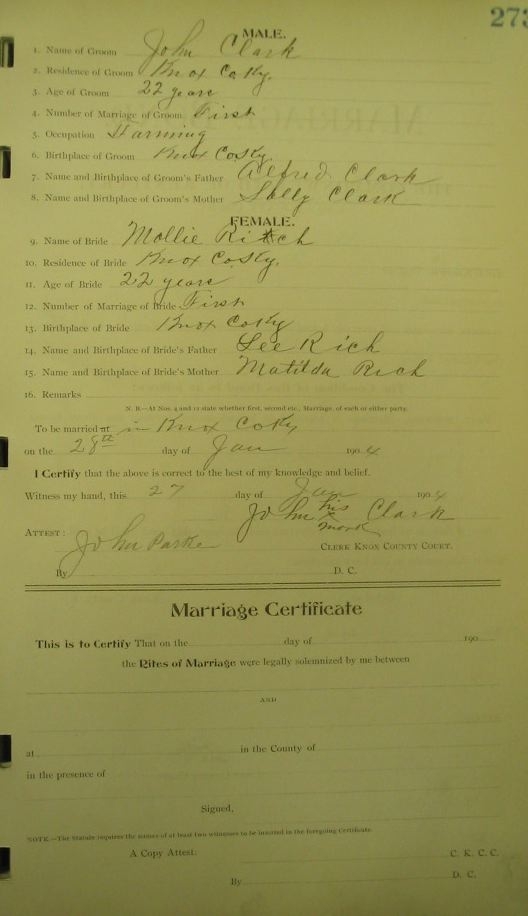 273
MALE.
1. Name of Groom John Clark
2. Residence of Groom Knox Co Ky.
3. Age of Groom 22 years
4. Number of Marriage of Groom First
5. Occupation Farming
6. Birthplace of Groom Knox Co Ky
7. Name and Birthplace of Groom's Father Alfred Clark
8. Name and Birthplace of Groom's Mother Sally Clark
FEMALE.
9. Name of Bride Mollie Rich
10. Residence of Bride Knox Co Ky.
11. Age of Bride 22 years
12. Number of Marriage of Bride First
13. Birthplace of Bride Knox Co Ky
14. Name and Birthplace of Bride's Father Lee Rich
15. Name and Birthplace of Bride's Mother Matilda Rich
16. Remarks
N. B.—At Nos. 4 and 12 state whether first, second etc., Marriage, of each or either party.
To be married at in Knox Co Ky
on the 28th day of Jan 1904
I Certify that the above is correct to the best of my knowledge and belief.
Witness my hand, this 27 day of Jan 1904
John his x mark Clark
ATTEST: John Parke
CLERK KNOX COUNTY COURT.
By D. C.
Marriage Certificate
This is to Certify That on the day of 190
the Rites of Marriage were legally solemnized by me between
AND
at in the County of
in the presence of
Signed,
NOTE.—The Statute requires the names of at least two witnesses to be inserted in the foregoing Certificate.
A Copy Attest: C. K. C. C.
By D. C.